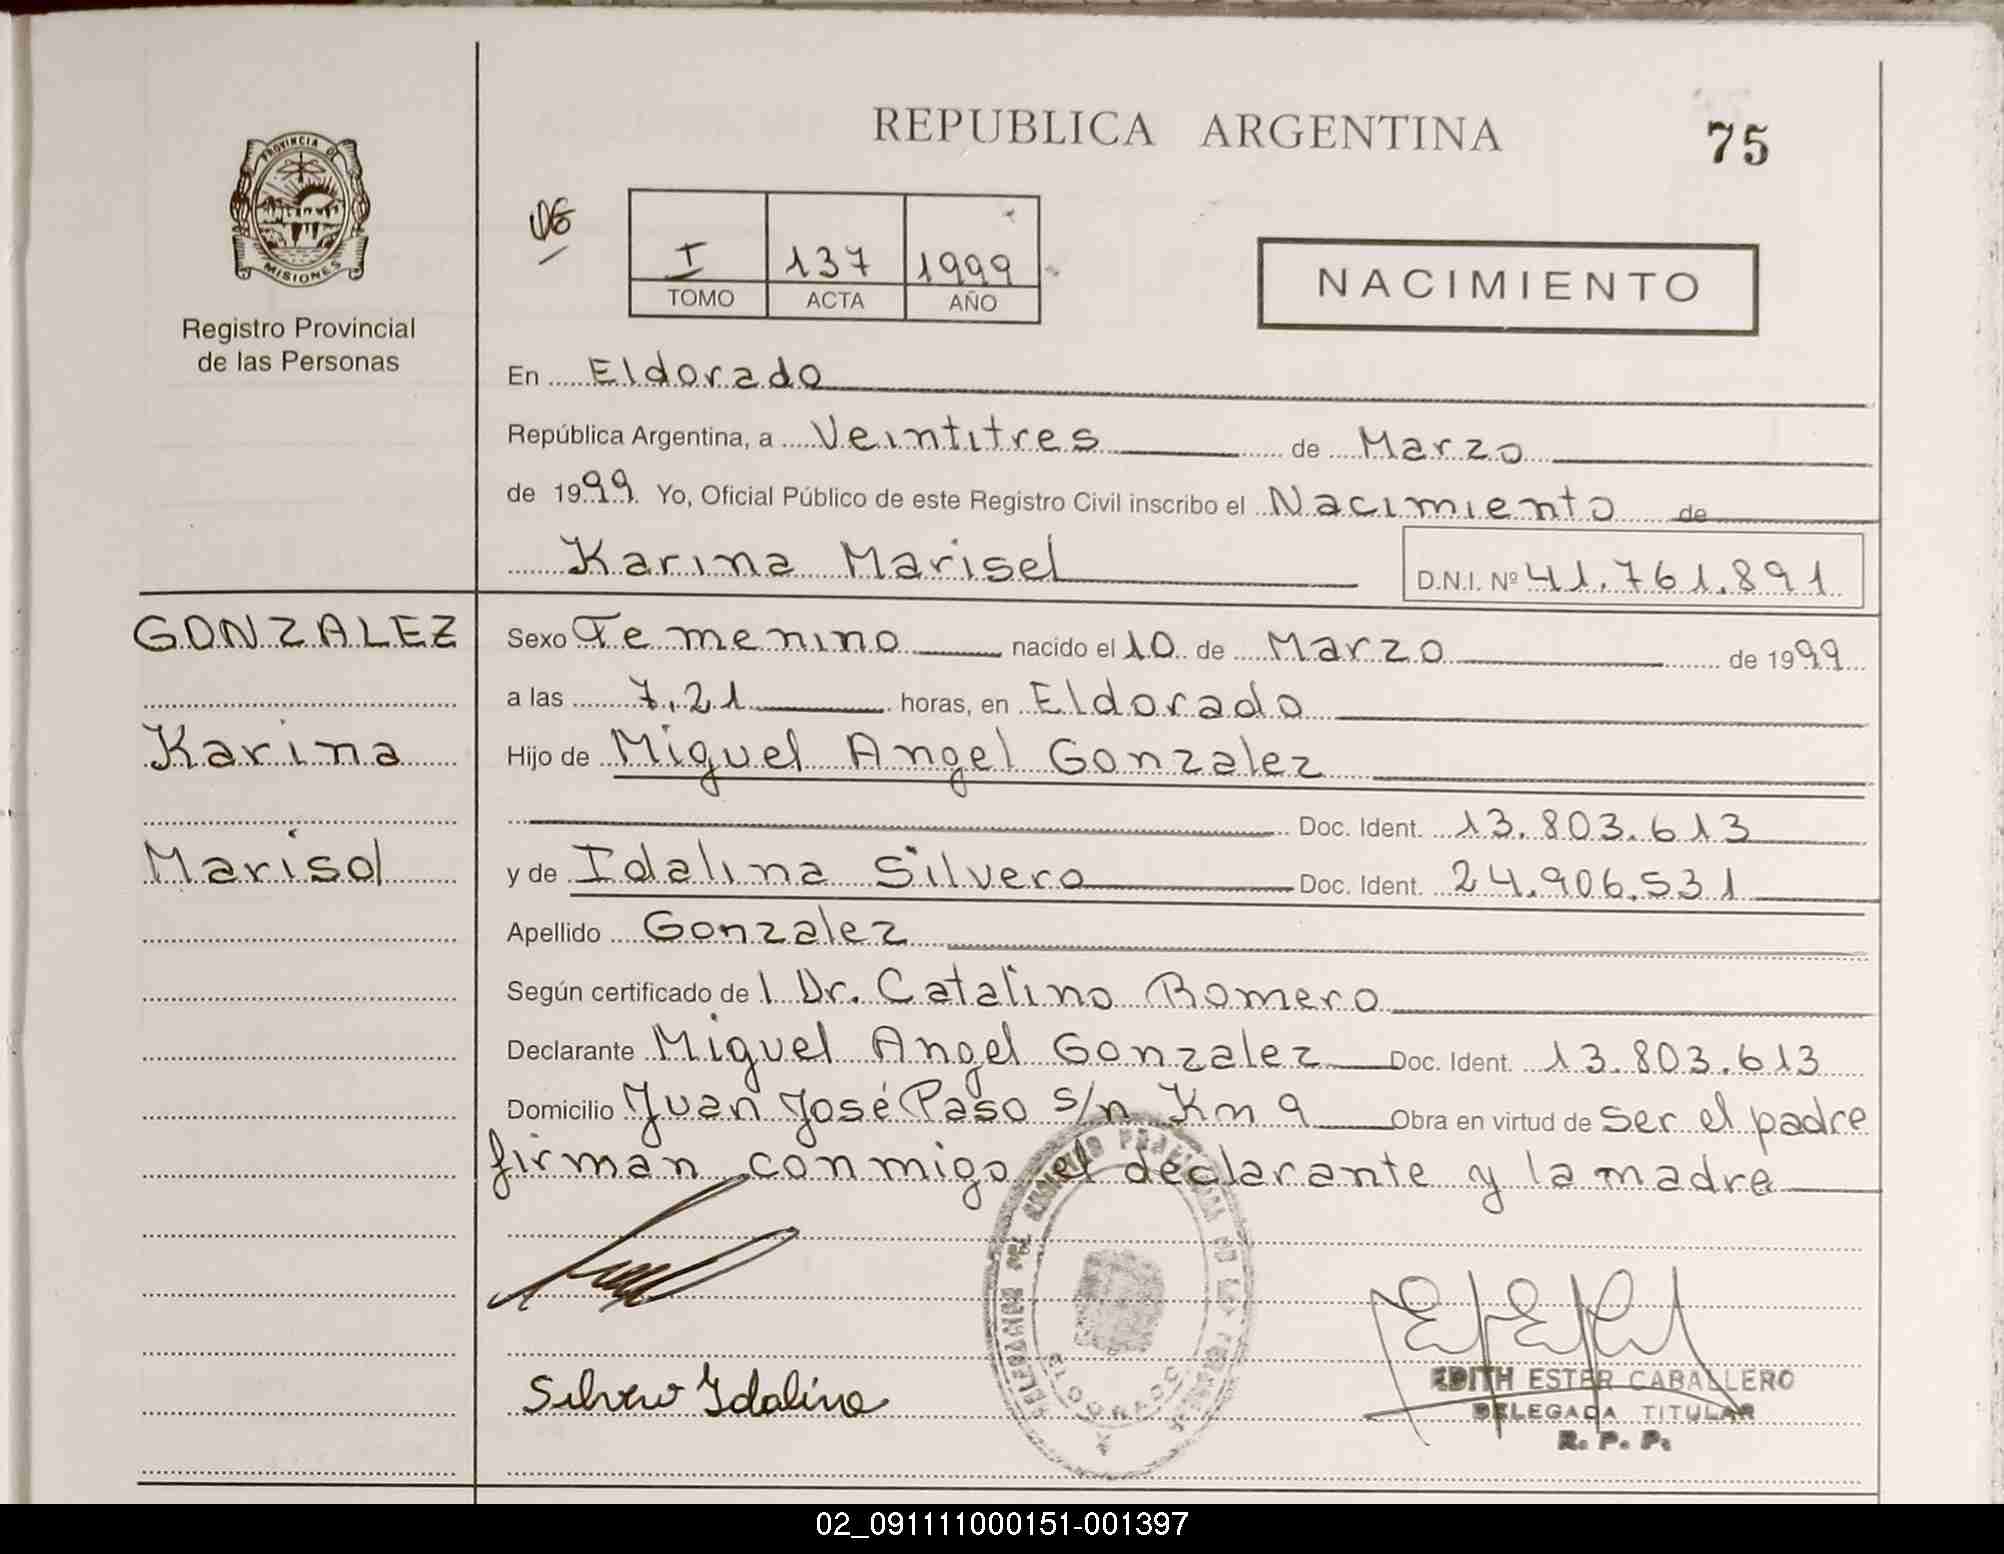 REPUBLICA ARGENTINA
75
PROVINCIA DE
MISIONES
Registro Provincial
de las Personas
I 137 1999
TOMO ACTA AÑO
NACIMIENTO
En Eldorado
República Argentina, a Veintitres de Marzo
de 1999 Yo, Oficial Público de este Registro Civil inscribo el Nacimiento de
Karina Marisel
D.N.I. Nº 41.761.891
GONZALEZ
Karina
Marisol
Sexo Femenino nacido el 10 de Marzo de 1999
a las 7,21 horas, en Eldorado
Hijo de Miguel Angel Gonzalez
Doc. Ident. 13.803.613
y de Idalina Silvero Doc. Ident. 24.906.531
Apellido Gonzalez
Según certificado de l Dr. Catalino Romero
Declarante Miguel Angel Gonzalez Doc. Ident. 13.803.613
Domicilio Juan José Paso s/n Km 9 Obra en virtud de ser el padre
firman conmigo el declarante y la madre
Silvero Idalina
EDITH ESTER CABALLERO
DELEGADA TITULAR
R. P. P.
02_091111000151-001397